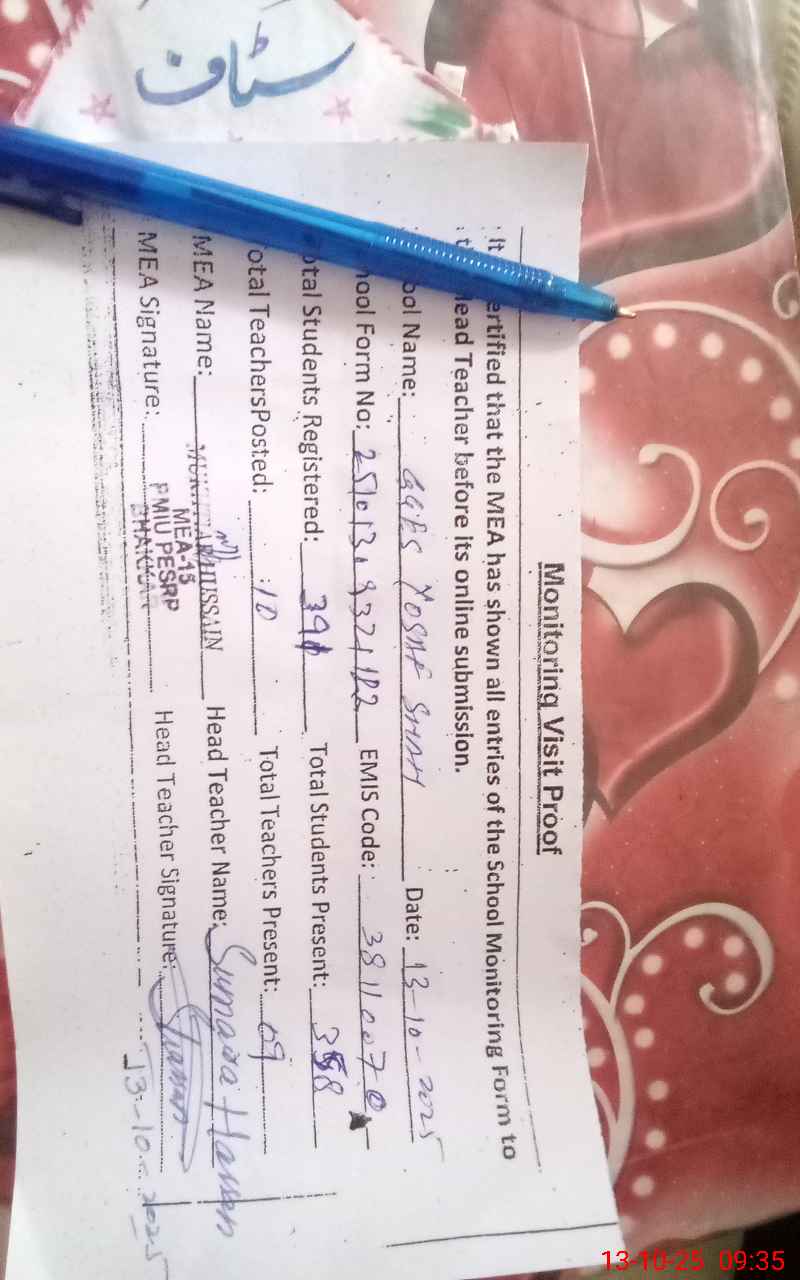 سٹاف
Monitoring Visit Proof
: It ertified that the MEA has shown all entries of the School Monitoring Form to
: t lead Teacher before its online submission.
ool Name: GGES YOSAF SHAH Date: 13-10-2025
hool Form No: EMIS Code: 38110070
otal Students Registered: 391 Total Students Present: 358
otal TeachersPosted: 10 Total Teachers Present: 09
MEA Name: HUSSAIN Head Teacher Name: Sumaira Hassan
MEA-15
PMIU PESRP
BHAKKAR
MEA Signature: Head Teacher Signature:
13-10-2025
13-10-25 09:35